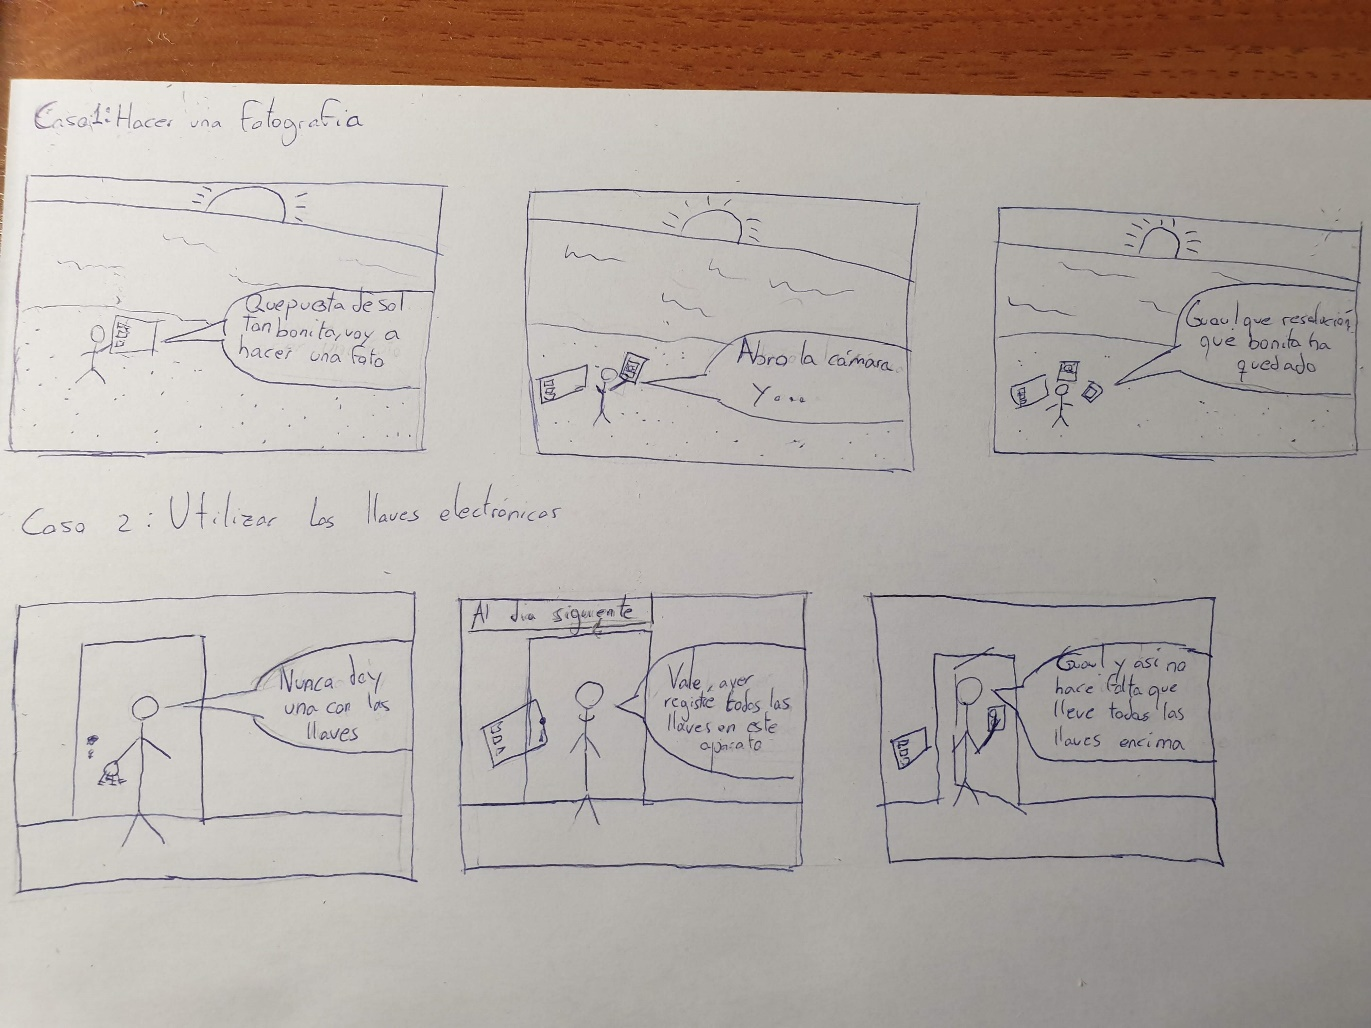 Caso1: Hacer una fotografía
Que puesta de sol
tan bonita, voy a
hacer una foto
Abro la cámara
y...
Guau! que resolución,
que bonita ha
quedado
Caso 2: Utilizar las llaves electrónicas
Nunca doy
una con las
llaves
Al dia siguiente
Vale, ayer
registre todas las
llaves en este
aparato
Guau! y asi no
hace falta que
lleve todas las
llaves encima